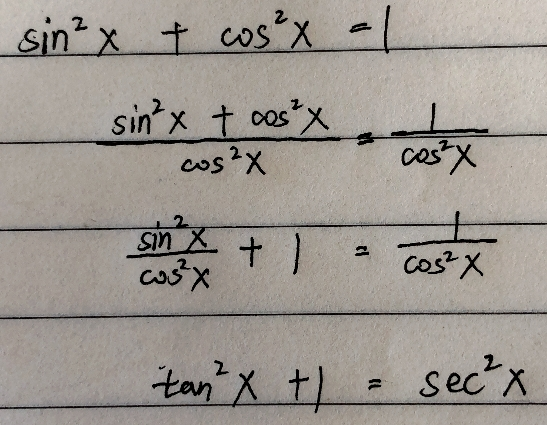 sin²x + cos²x = 1
(sin²x + cos²x)/(cos²x) = 1/(cos²x)
(sin²x)/(cos²x) + 1 = 1/(cos²x)
tan²x + 1 = sec²x